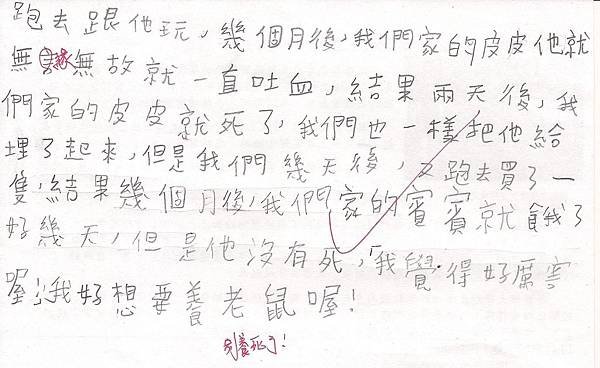 跑去跟他玩,幾個月後,我們家的皮皮他就
無緣無故就一直吐血,結果兩天後,我
們家的皮皮就死了,我們也一樣把他給
埋了起來,但是我們幾天後,又跑去買了一
隻,結果幾個月後,我們家的賓賓就餓了
好幾天,但是他沒有死,我覺得好厲害
喔!我好想要養老鼠喔!
別養死了!